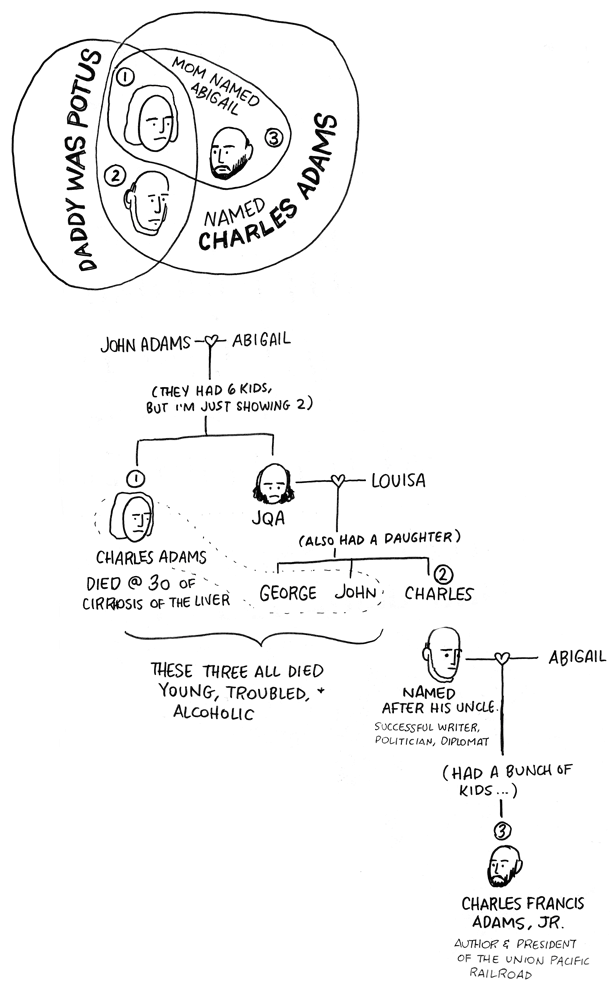 DADDY WAS POTUS
①
MOM NAMED
ABIGAIL
③
②
NAMED
CHARLES ADAMS
JOHN ADAMS ♡ ABIGAIL
(THEY HAD 6 KIDS,
BUT I'M JUST SHOWING 2)
①
JQA
♡ LOUISA
(ALSO HAD A DAUGHTER)
CHARLES ADAMS
DIED @ 30 OF
CIRRHOSIS OF THE LIVER
GEORGE JOHN
②
CHARLES
THESE THREE ALL DIED
YOUNG, TROUBLED, +
ALCOHOLIC
♡ ABIGAIL
NAMED
AFTER HIS UNCLE.
SUCCESSFUL WRITER,
POLITICIAN, DIPLOMAT
(HAD A BUNCH OF
KIDS...)
③
CHARLES FRANCIS
ADAMS, JR.
AUTHOR & PRESIDENT
OF THE UNION PACIFIC
RAILROAD